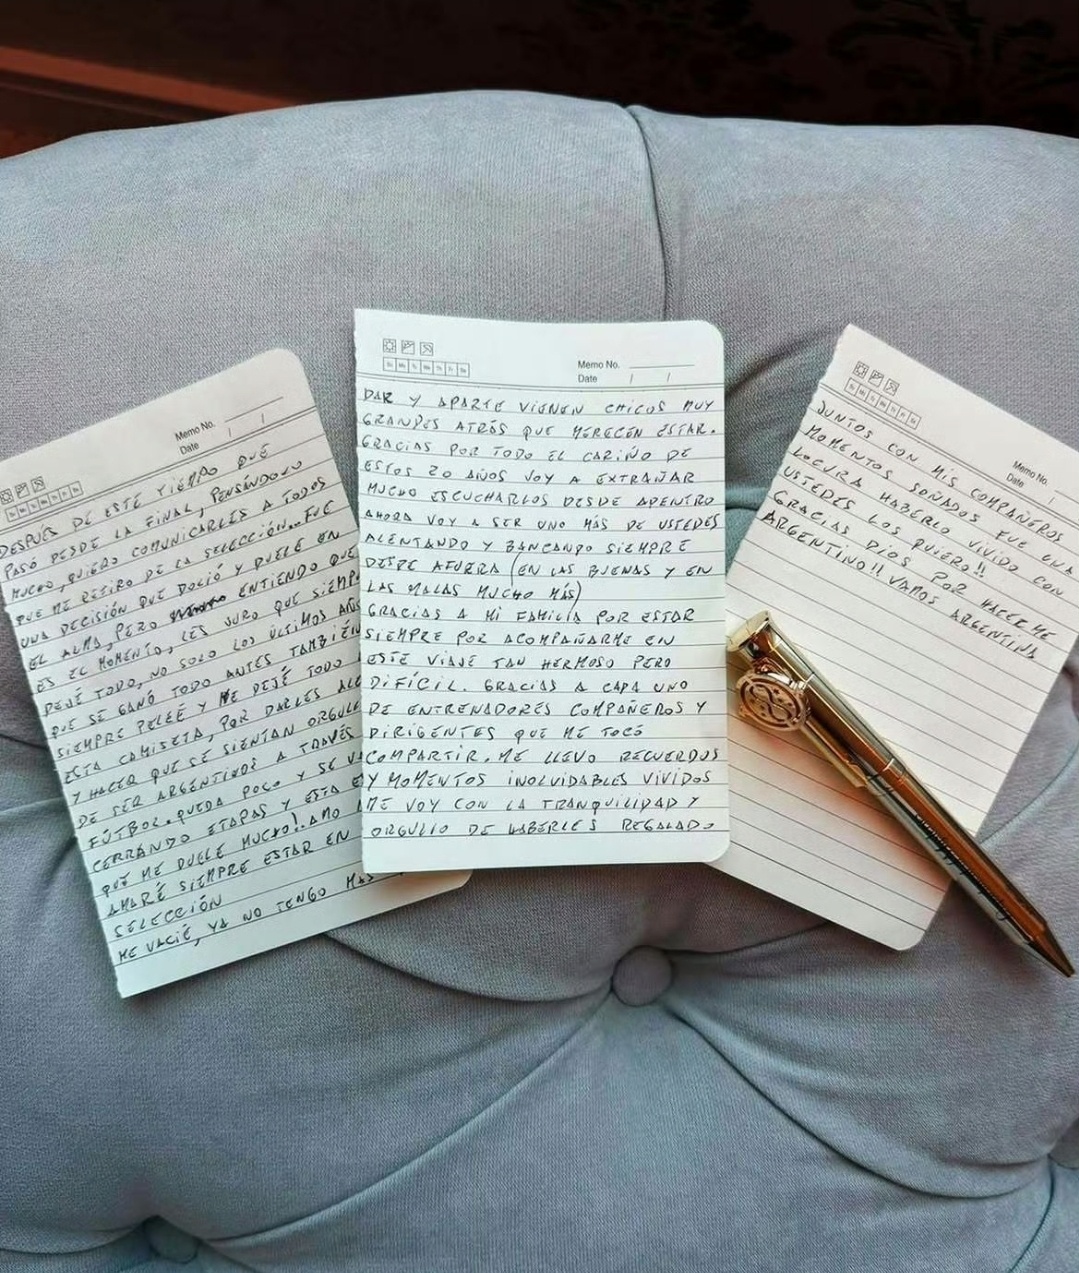 Memo No.
Date / /
DESPUÉS DE ESTE TIEMPO QUE
PASÓ DESDE LA FINAL, PENSÁNDOLO
MUCHO, QUIERO COMUNICARLES A TODOS
QUE ME RETIRO DE LA SELECCIÓN... FUE
UNA DECISIÓN QUE DOLIÓ Y DUELE EN
EL ALMA, PERO ENTIENDO QUE
ES EL MOMENTO, LES JURO QUE SIEMP
DEJÉ TODO, NO SOLO LOS ÚLTIMOS AÑOS
QUE SE GANÓ TODO ANTES TAMBIÉN
SIEMPRE PELEÉ Y ME DEJÉ TODO
ESTA CAMISETA, POR DARLES ALE
Y HACER QUE SE SIENTAN ORGULL
DE SER ARGENTINOS A TRAVÉS
FÚTBOL. QUEDA POCO Y SE VA
CERRANDO ETAPAS Y ESTA E
QUE ME DUELE MUCHO!. AMO
AMARÉ SIEMPRE ESTAR EN
SELECCIÓN
ME VACIÉ, YA NO TENGO MÁS
Su Mo Tu We Th Fr Sa
Memo No.
Date / /
DAR Y APARTE VIENEN CHICOS MUY
GRANDES ATRÁS QUE MERECEN ESTAR.
GRACIAS POR TODO EL CARIÑO DE
ESTOS 20 AÑOS VOY A EXTRAÑAR
MUCHO ESCUCHARLOS DESDE ADENTRO
AHORA VOY A SER UNO MÁS DE USTEDES
ALENTANDO Y BANCANDO SIEMPRE
DESDE AFUERA (EN LAS BUENAS Y EN
LAS MALAS MUCHO MÁS)
GRACIAS A MI FAMILIA POR ESTAR
SIEMPRE POR ACOMPAÑARME EN
ESTE VIAJE TAN HERMOSO PERO
DIFÍCIL. GRACIAS A CADA UNO
DE ENTRENADORES COMPAÑEROS Y
DIRIGENTES QUE ME TOCÓ
COMPARTIR. ME LLEVO RECUERDOS
Y MOMENTOS INOLVIDABLES VIVIDOS
ME VOY CON LA TRANQUILIDAD Y
ORGULLO DE HABERLES REGALADO
Memo No.
Date /
JUNTOS CON MIS COMPAÑEROS
MOMENTOS SOÑADOS FUE UNA
LOCURA HABERLO VIVIDO CON
USTEDES LOS QUIERO!!
GRACIAS DIOS POR HACERME
ARGENTINO!! VAMOS ARGENTINA